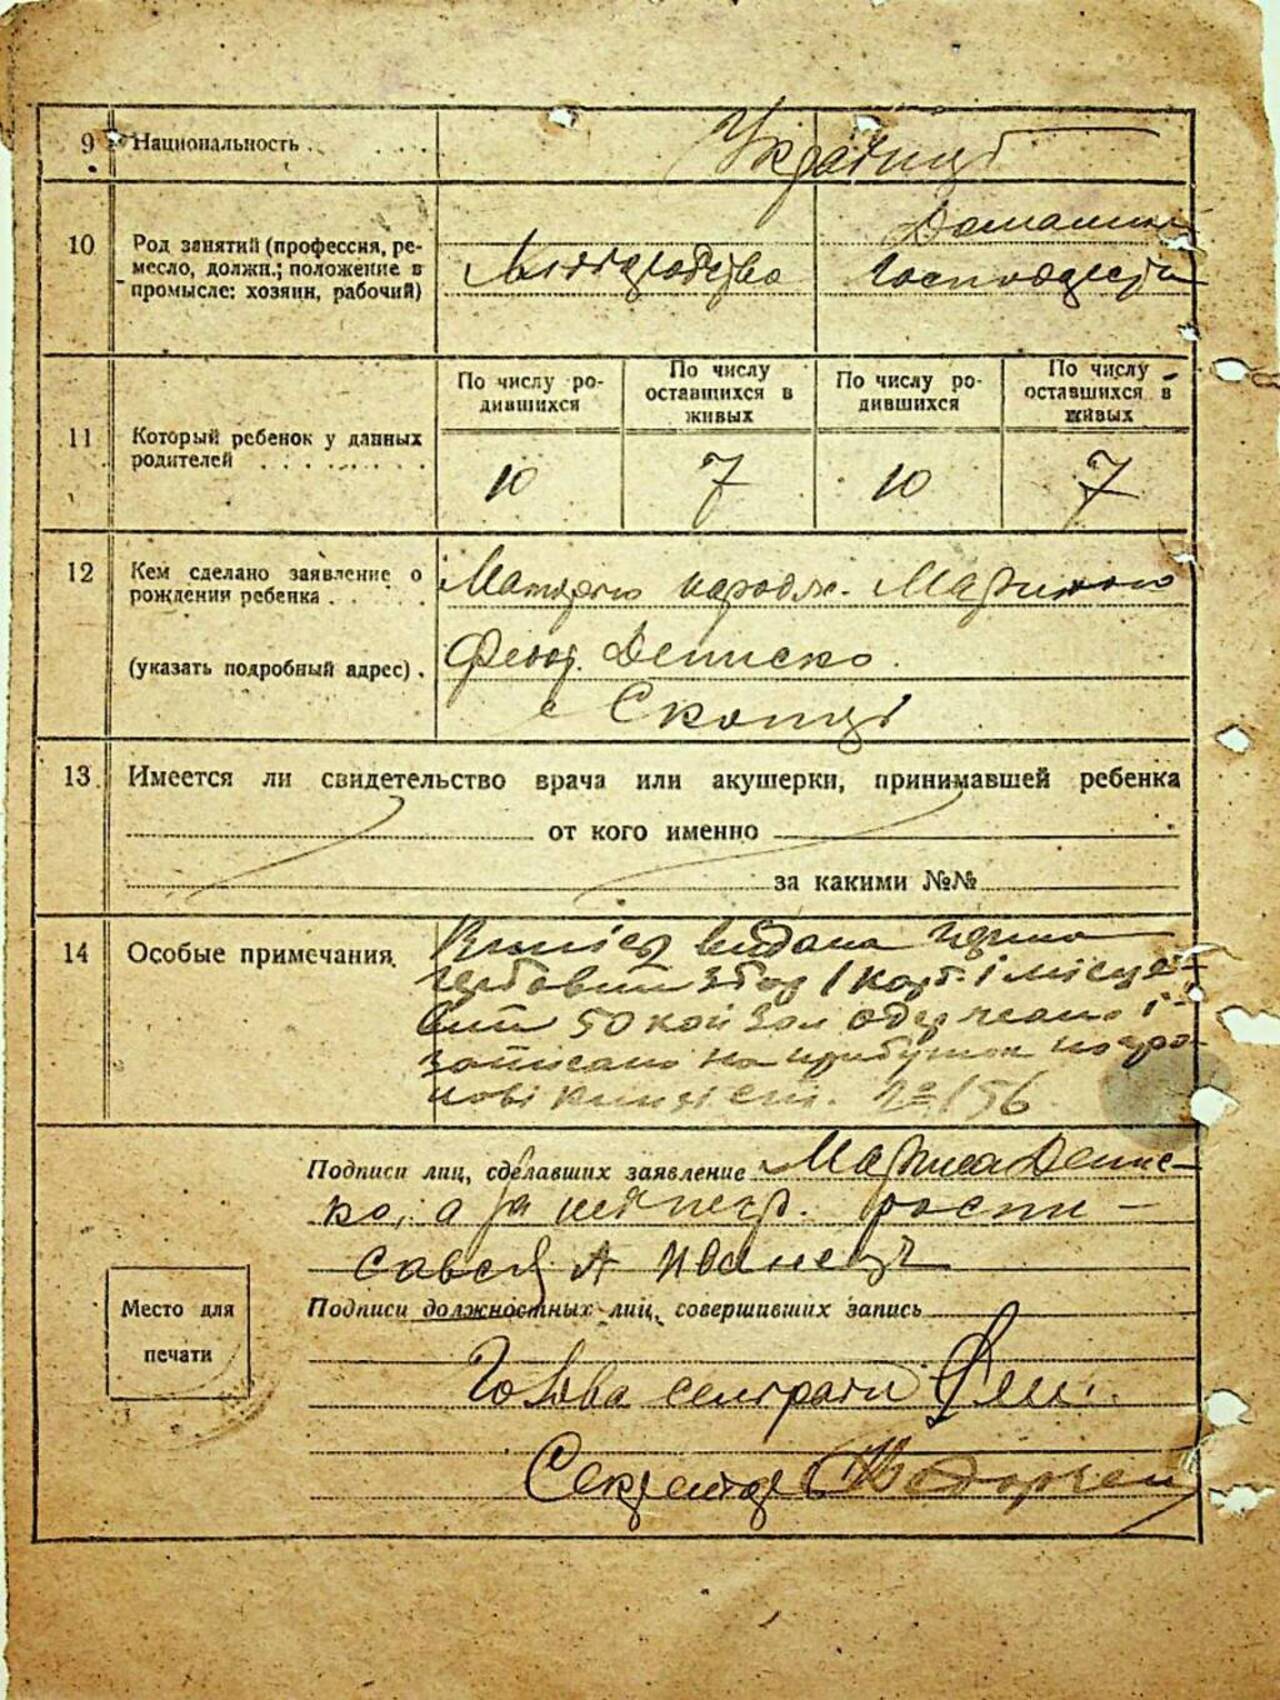 9 Национальность . . . . . Українці
10 Род занятий (профессия, ре-
месло, должн.; положение в
промысле: хозяин, рабочий)
Домашнє
Господарств
11 Который ребенок у данных
родителей . . . . . . . . .
По числу ро-
дившихся
По числу
оставшихся в
живых
По числу ро-
дившихся
По числу
оставшихся в
живых
10 7 10 7
12 Кем сделано заявление о
рождения ребенка . . . . .
(указать подробный адрес) .
Матірью народж. Мариною
Федор. Дениско.
с Скопці
13. Имеется ли свидетельство врача или акушерки, принимавшей ребенка
от кого именно
за какими №№
14 Особые примечания.
видана
гербовий збор 1 карб. і місце-
вий 50 коп одержано і
записано на прибуток по
книзі ст. № 156
Подписи лиц, сделавших заявление Марина Денис-
ко, а за неї роспи-
савсь А Иванець
Подписи должностных лиц, совершивших запись
Место для
печати
Голова сельради
Секретарь